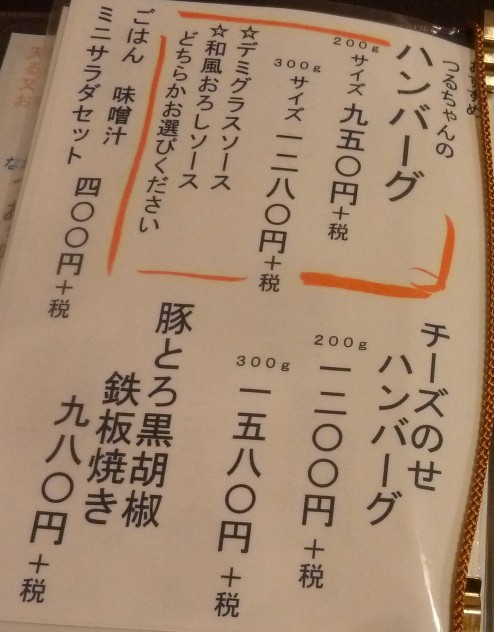 おすすめ
つるちゃんの
ハンバーグ
200gサイズ 九五〇円+税
300gサイズ 一二八〇円+税
☆デミグラスソース
☆和風おろしソース
どちらかお選びください
ごはん 味噌汁
ミニサラダセット 四〇〇円+税
チーズのせ
ハンバーグ
200g 一二〇〇円+税
300g 一五八〇円+税
豚とろ黒胡椒
鉄板焼き
九八〇円+税